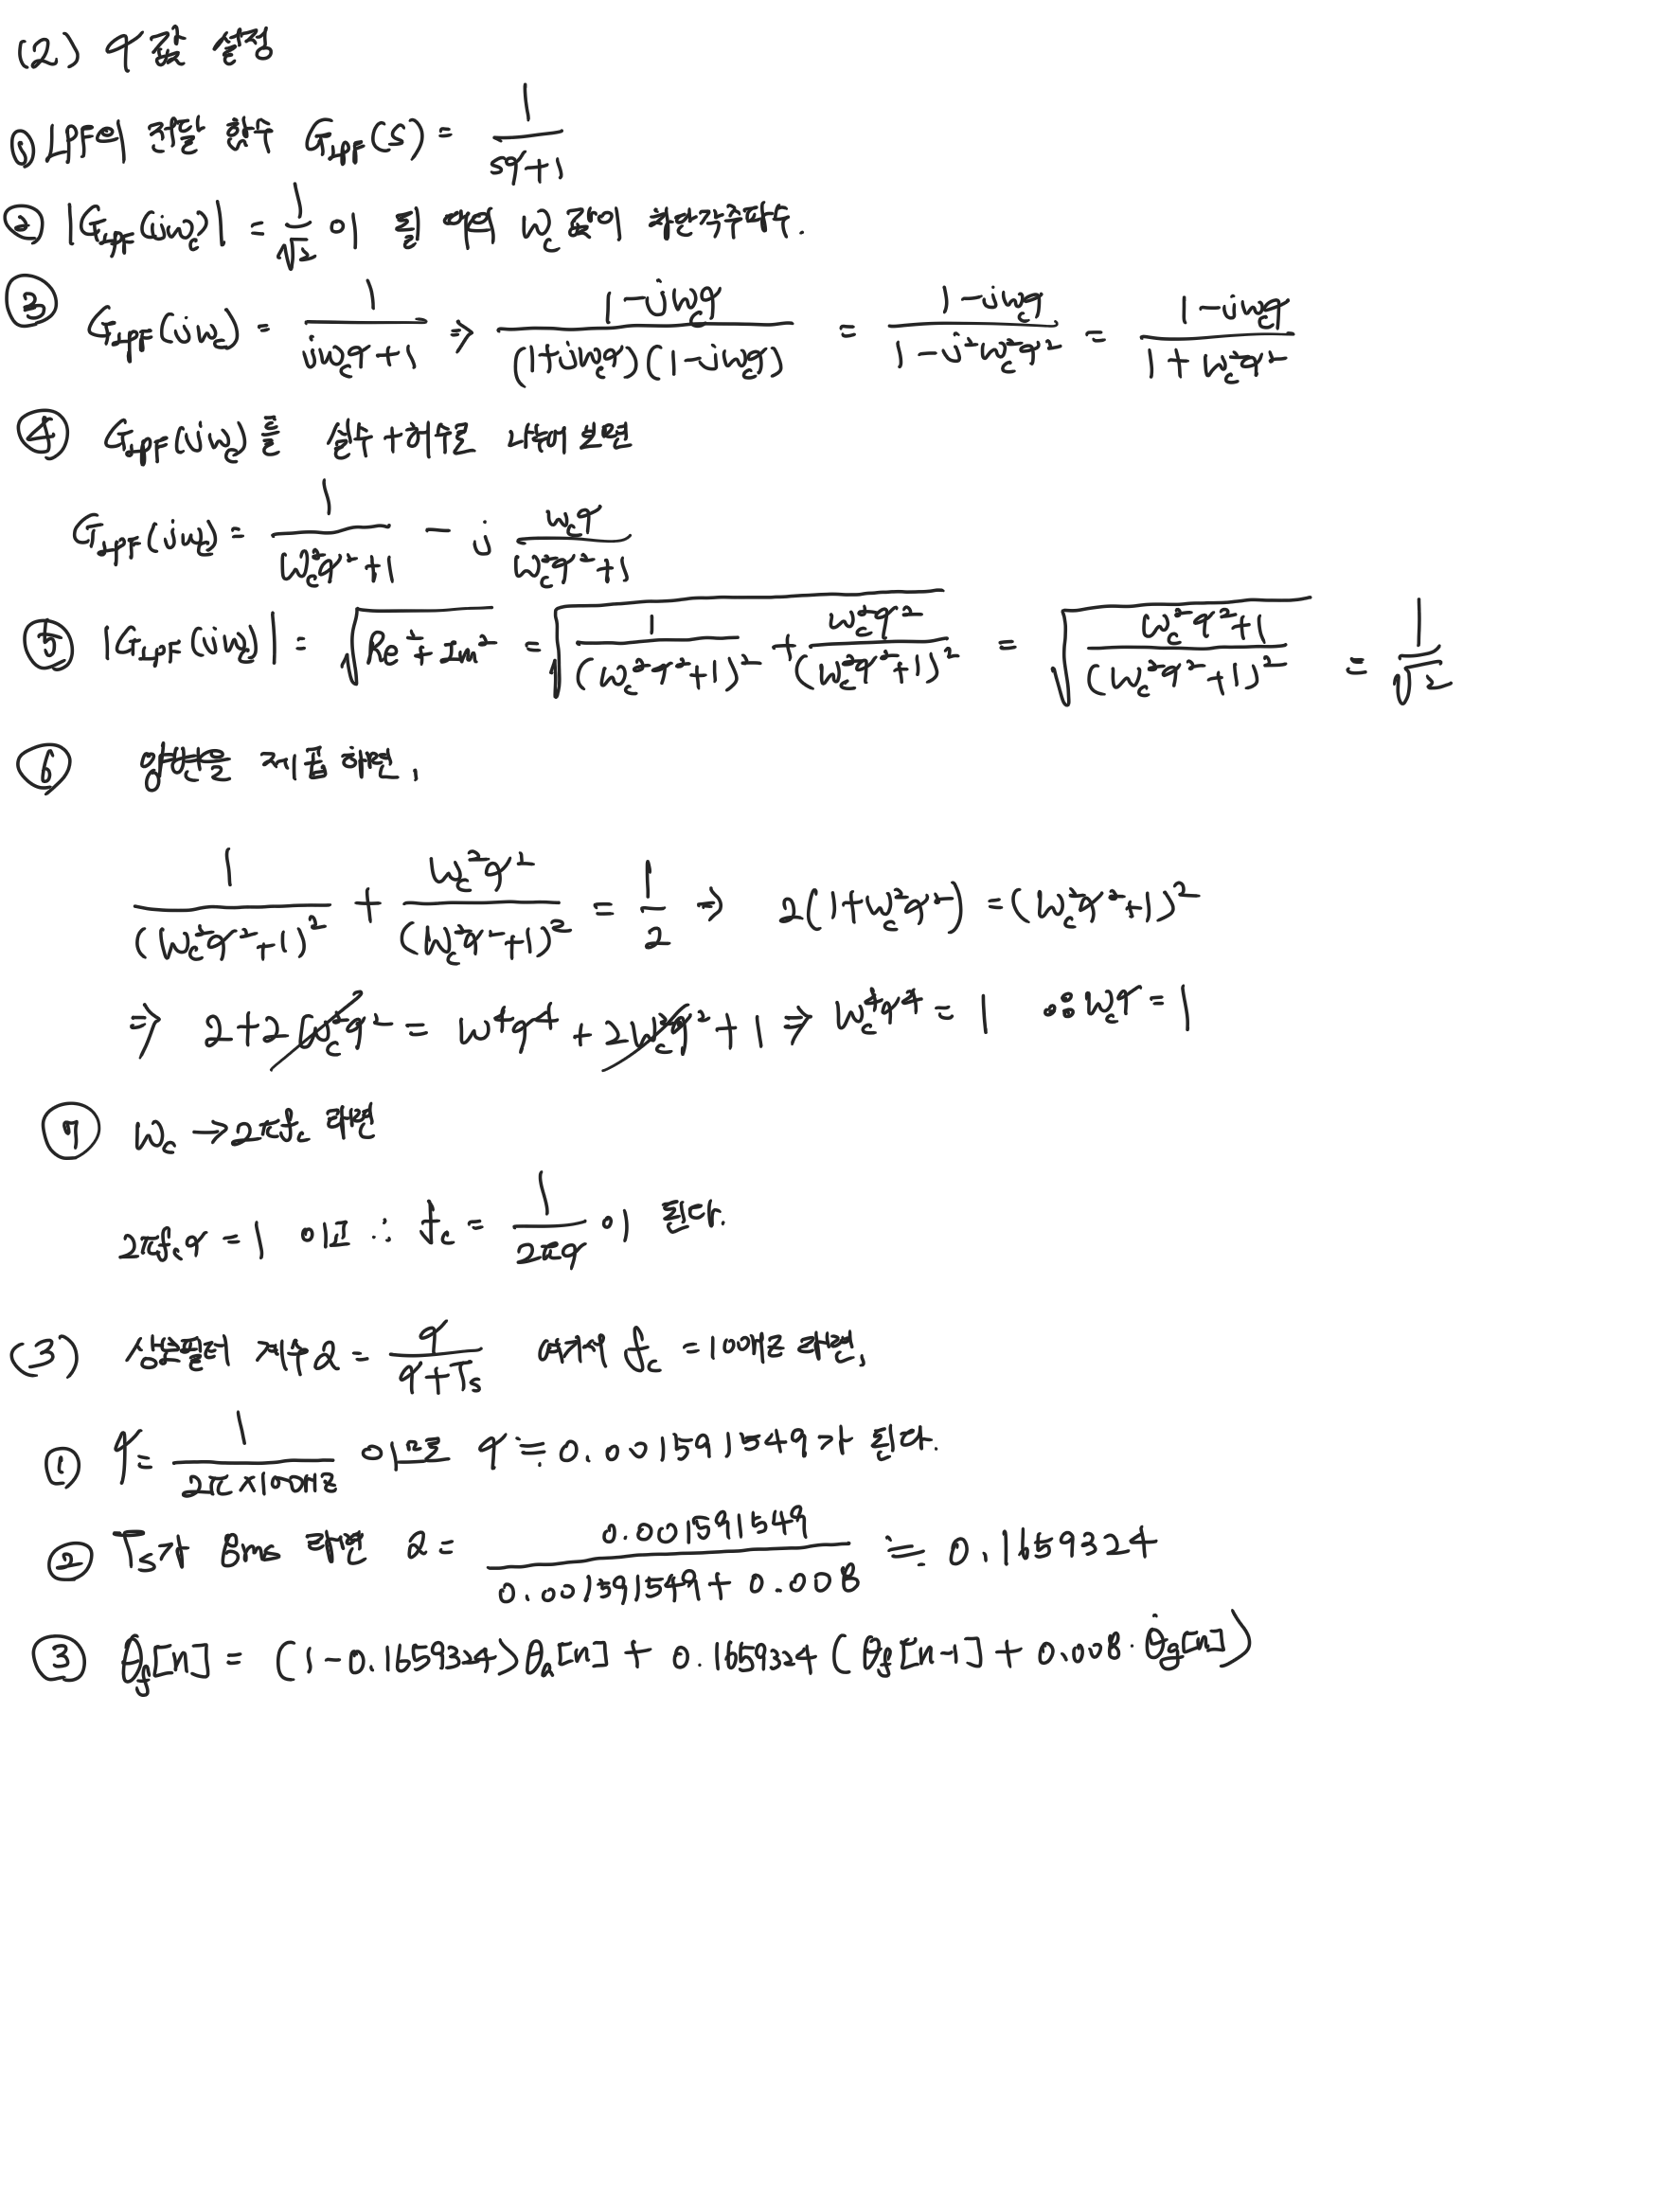 (2) φ값 설정
① LPF의 전달 함수 G_LPF(s) = 1/(sφ+1)
② |G_LPF(jω_c)| = 1/√2 이 될 때의 ω_c 값이 차단주파수.
③ G_LPF(jω_c) = 1/(jω_cφ+1) ⇒ (1-jω_cφ)/((1+jω_cφ)(1-jω_cφ)) = (1-jω_cφ)/(1-j²ω_c²φ²) = (1-jω_cφ)/(1+ω_c²φ²)
④ G_LPF(jω_c)를 실수+허수로 나누어 보면
G_LPF(jω_c) = 1/(ω_c²φ²+1) - j ω_cφ/(ω_c²φ²+1)
⑤ |G_LPF(jω_c)| = √(Re²+Im²) = √(1/(ω_c²φ²+1)² + ω_c²φ²/(ω_c²φ²+1)²) = √((ω_c²φ²+1)/(ω_c²φ²+1)²) = 1/√2
⑥ 양변을 제곱하면,
1/(ω_c²φ²+1)² + ω_c²φ²/(ω_c²φ²+1)² = 1/2 → 2(1+ω_c²φ²) = (ω_c²φ²+1)²
⇒ 2+2ω_c²φ² = ω⁴φ⁴ + 2ω_c²φ² + 1 ⇒ ω_c⁴φ⁴ = 1 ∴ ω_cφ = 1
⑦ ω_c → 2πf_c 라면
2πf_cφ = 1 이고 ∴ f_c = 1/(2πφ) 이 된다.
(3) 상보필터 계수 α = φ/(φ+T_s) 여기서 f_c = 100Hz라면,
① φ = 1/(2π×100Hz) 이므로 φ ≒ 0.001591549가 된다.
② T_s가 8ms 라면 α = 0.001591549/(0.001591549+0.008) ≒ 0.1659324
③ θ_f[n] = (1-0.1659324)θ_a[n] + 0.1659324(θ_f[n-1] + 0.008·θ̇_g[n])